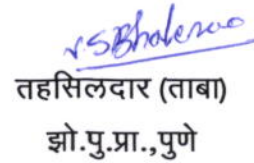 V.S.Bhalerao
तहसिलदार (ताबा)
झो.पु.प्रा.,पुणे